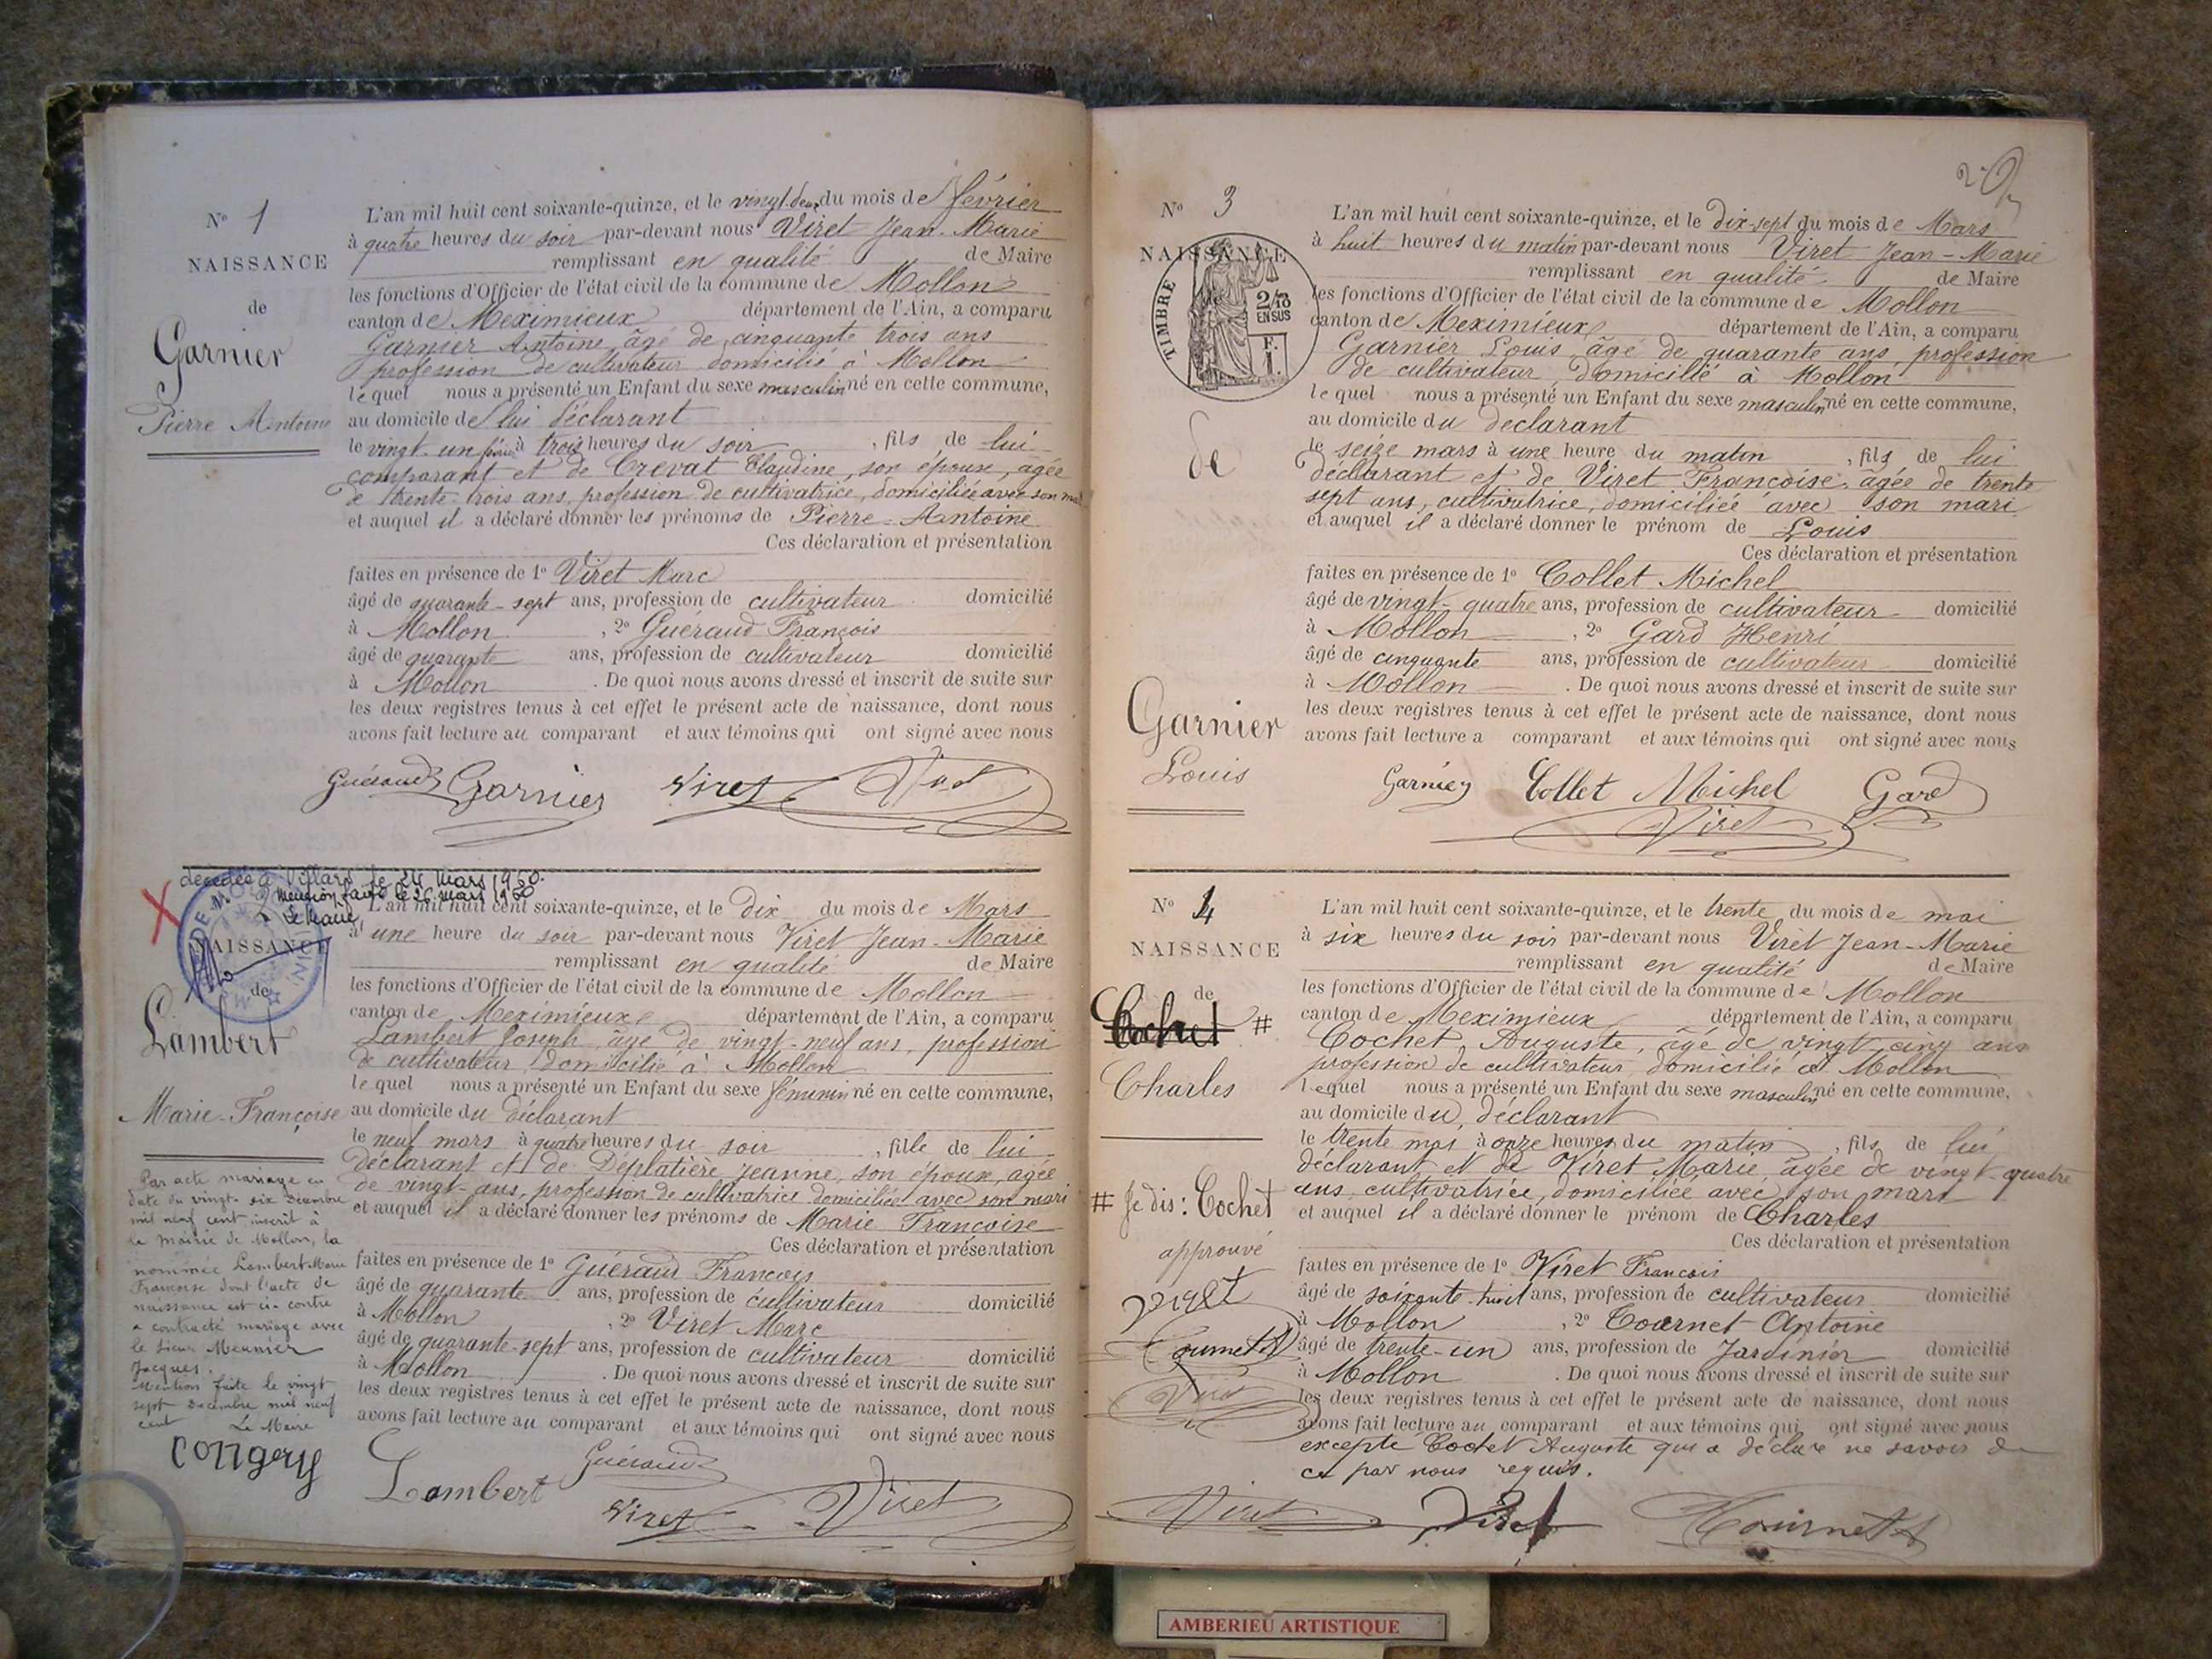 N° 1
NAISSANCE
de
Garnier
Pierre Antoine
L'an mil huit cent soixante-quinze, et le vingt-deux du mois de février
à quatre heures du soir par-devant nous Viret Jean-Marie
remplissant en qualité de Maire
les fonctions d'Officier de l'état civil de la commune de Mollon
canton de Meximieux département de l'Ain, a comparu
Garnier Antoine âgé de cinquante trois ans
profession de cultivateur domicilié à Mollon
lequel nous a présenté un Enfant du sexe masculin né en cette commune,
au domicile de lui déclarant
le vingt-un février à trois heures du soir, fils de lui
comparant et de Crevat Claudine, son épouse, agée
de trente-trois ans, profession de cultivatrice, domiciliée avec son mari
et auquel il a déclaré donner les prénoms de Pierre-Antoine
Ces déclaration et présentation
faites en présence de 1° Viret Marc
âgé de quarante-sept ans, profession de cultivateur domicilié
à Mollon, 2° Gueraud François
âgé de quarante ans, profession de cultivateur domicilié
à Mollon. De quoi nous avons dressé et inscrit de suite sur
les deux registres tenus à cet effet le présent acte de naissance, dont nous
avons fait lecture au comparant et aux témoins qui ont signé avec nous
Guéraud Garnier Viret Viret
décédée à Villars le 24 mars 1950
mention faite le 26 mars 1950
Le Maire,
NAISSANCE
de
Lambert
Marie-Françoise
Par acte mariage en
date du vingt-six Décembre
mil neuf cent inscrit à
la mairie de Mollon, la
nommée Lambert Marie
Françoise dont l'acte de
naissance est ci-contre
a contracté mariage avec
le sieur Meunier
Jacques.
Mention faite le vingt
sept Décembre mil neuf
cent Le Maire
L'an mil huit cent soixante-quinze, et le dix du mois de Mars
à une heure du soir par-devant nous Viret Jean-Marie
remplissant en qualité de Maire
les fonctions d'Officier de l'état civil de la commune de Mollon
canton de Meximieux département de l'Ain, a comparu
Lambert Joseph, âgé de vingt-neuf ans, profession
de cultivateur domicilié à Mollon
lequel nous a présenté un Enfant du sexe féminin né en cette commune,
au domicile du déclarant
le neuf mars à quatre heures du soir, fille de lui
déclarant et de Déplatière Jeanne, son épouse, agée
de vingt-ans, profession de cultivatrice domiciliée avec son mari
et auquel il a déclaré donner les prénoms de Marie Françoise
Ces déclaration et présentation
faites en présence de 1° Guéraud François
âgé de quarante ans, profession de cultivateur domicilié
à Mollon, 2° Viret Marc
âgé de quarante-sept ans, profession de cultivateur domicilié
à Mollon. De quoi nous avons dressé et inscrit de suite sur
les deux registres tenus à cet effet le présent acte de naissance, dont nous
avons fait lecture au comparant et aux témoins qui ont signé avec nous
Lambert Guéraud
Viret Viret
N° 3
NAISSANCE
TIMBRE
2/10
EN SUS
F.
1.
de
Garnier
Louis
L'an mil huit cent soixante-quinze, et le dix-sept du mois de Mars
à huit heures du matin par-devant nous Viret Jean-Marie
remplissant en qualité de Maire
les fonctions d'Officier de l'état civil de la commune de Mollon
canton de Meximieux département de l'Ain, a comparu
Garnier Louis âgé de quarante ans, profession
de cultivateur, domicilié à Mollon
lequel nous a présenté un Enfant du sexe masculin né en cette commune,
au domicile du déclarant
le seize mars à une heure du matin, fils de lui
déclarant et de Viret Françoise, âgée de trente
sept ans, cultivatrice, domiciliée avec son mari
et auquel il a déclaré donner le prénom de Louis
Ces déclaration et présentation
faites en présence de 1° Collet Michel
âgé de vingt-quatre ans, profession de cultivateur domicilié
à Mollon, 2° Gard Henri
âgé de cinquante ans, profession de cultivateur domicilié
à Mollon. De quoi nous avons dressé et inscrit de suite sur
les deux registres tenus à cet effet le présent acte de naissance, dont nous
avons fait lecture a comparant et aux témoins qui ont signé avec nous
Garnier Collet Michel Gard
Viret
N° 4
NAISSANCE
de
Cochet #
Charles
# Je dis: Cochet
approuvé
Viret
Tournet
Viret
L'an mil huit cent soixante-quinze, et le trente du mois de mai
à six heures du soir par-devant nous Viret Jean-Marie
remplissant en qualité de Maire
les fonctions d'Officier de l'état civil de la commune de Mollon
canton de Meximieux département de l'Ain, a comparu
Cochet, Auguste, âgé de vingt-cinq ans
profession de cultivateur domicilié à Mollon
lequel nous a présenté un Enfant du sexe masculin né en cette commune,
au domicile du déclarant
le trente mai à onze heures du matin, fils de lui
déclarant et de Viret Marie, âgée de vingt-quatre
ans, cultivatrice, domiciliée avec son mari
et auquel il a déclaré donner le prénom de Charles
Ces déclaration et présentation
faites en présence de 1° Viret François
âgé de soixante-huit ans, profession de cultivateur domicilié
à Mollon, 2° Tournet Antoine
âgé de trente-un ans, profession de Jardinier domicilié
à Mollon. De quoi nous avons dressé et inscrit de suite sur
les deux registres tenus à cet effet le présent acte de naissance, dont nous
avons fait lecture au comparant et aux témoins qui ont signé avec nous
excepté Cochet Auguste qui a déclaré ne savoir de
ce par nous requis.
Viret Viret Tournet
AMBERIEU ARTISTIQUE